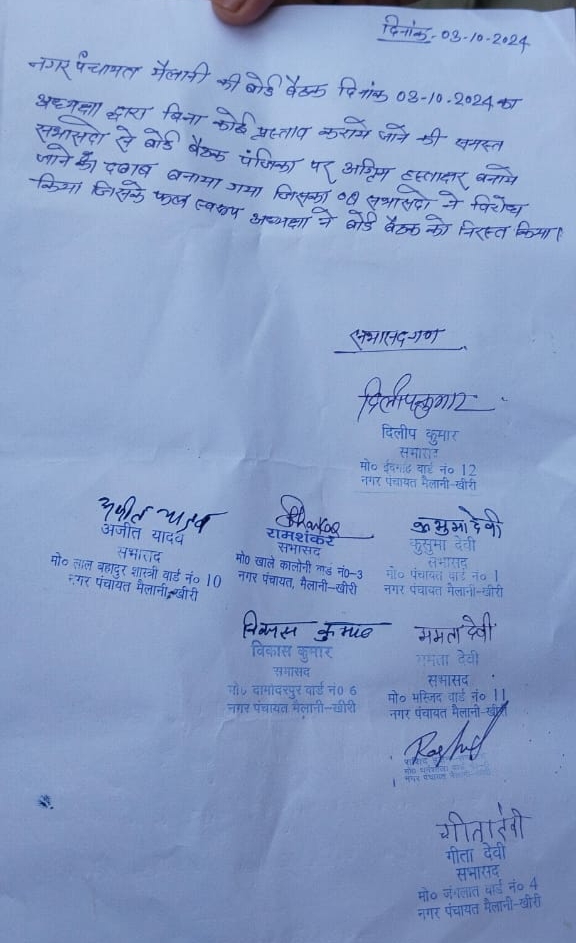 दिनांक - 03-10-2024
नगर पंचायत मैलानी की बोर्ड बैठक दिनांक 03-10-2024 का
अध्यक्षा द्वारा बिना कोई प्रस्ताव कराये जाने की समस्त
सभासदो से बोर्ड बैठक पंजिका पर अग्रिम हस्ताक्षर बनाये
जाने का दवाब बनाया गया जिसका 08 सभासदो ने विरोध
किया जिसके फल स्वरूप अध्यक्षा ने बोर्ड बैठक को निरस्त किया।
सभासदगण
दिलीपकुमार
दिलीप कुमार
सभासद
मो० ईदगाह वार्ड नं० 12
नगर पंचायत मैलानी-खीरी
अजीत यादव
अजीत यादव
सभासद
मो० लाल बहादुर शास्त्री वार्ड नं० 10
नगर पंचायत मैलानी-खीरी
रामशंकर
सभासद
मो० खाले कालोनी वार्ड नं०-3
नगर पंचायत, मैलानी-खीरी
कुसुमा देवी
कुसुमा देवी
सभासद
मो० पंचायत वार्ड नं० 1
नगर पंचायत मैलानी-खीरी
विकास कुमार
विकास कुमार
सभासद
मो० दामोदरपुर वार्ड नं० 6
नगर पंचायत मैलानी-खीरी
ममता देवी
ममता देवी
सभासद
मो० मस्जिद वार्ड नं० 11
नगर पंचायत मैलानी-खीरी
नगर पंचायत मैलानी-खीरी
गीता देवी
गीता देवी
सभासद
मो० जंगलात वार्ड नं० 4
नगर पंचायत मैलानी-खीरी